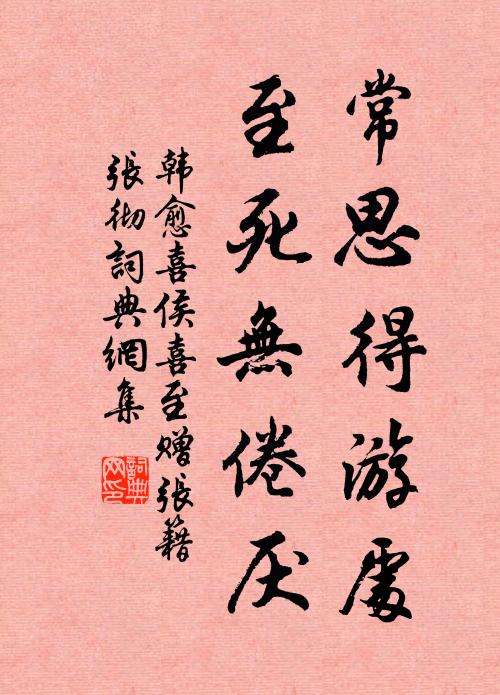 常思得游處
至死無倦厌
韩愈喜侯喜至赠張籍
張彻詞典網集
詞典网印